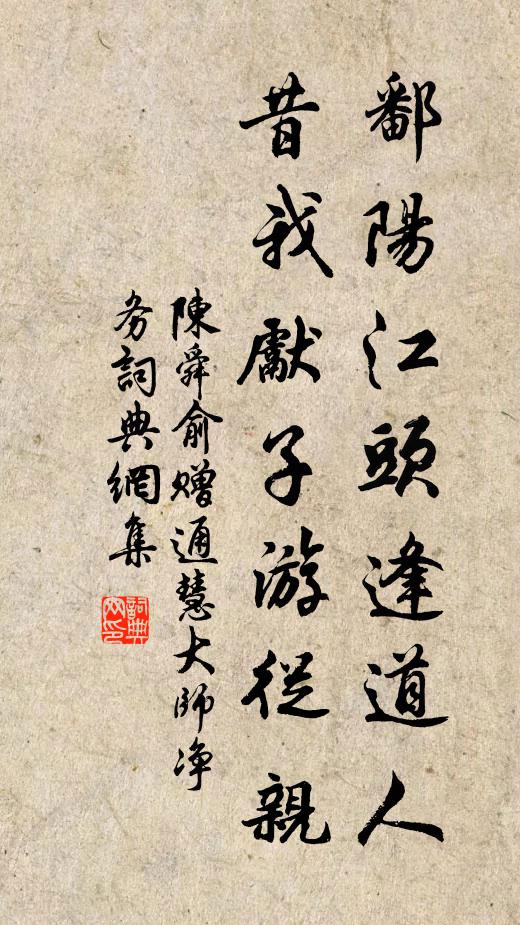 鄱陽江頭逢道人
昔我獻子游從親
陳舜俞贈通慧大師净
务詞典網集
詞典
网印